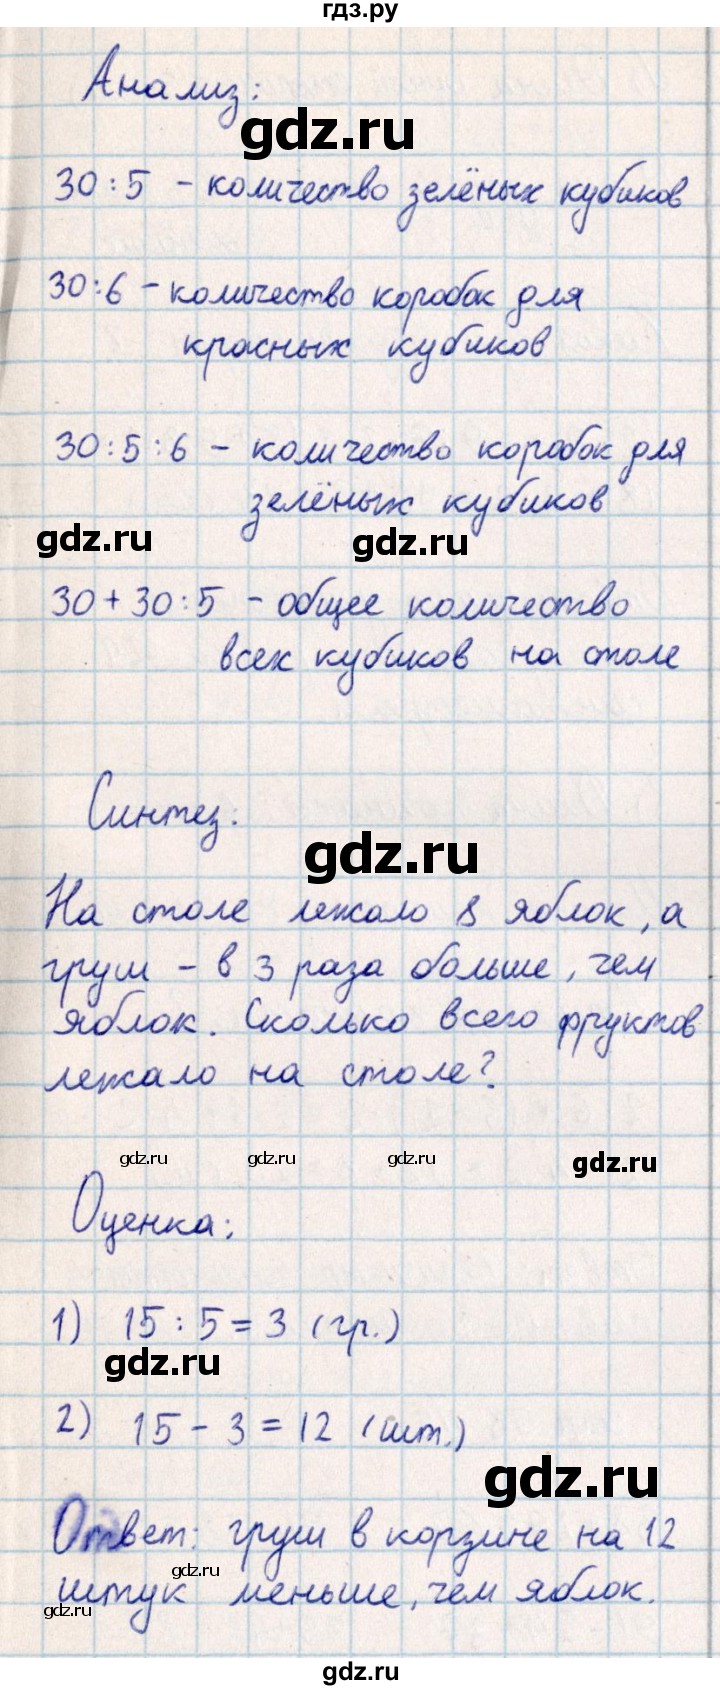 гдз.ру
Анализ:
gdz.ru
30:5 - количество зелёных кубиков
30:6 - количество коробок для
красных кубиков
30:5:6 - количество коробок для
зелёных кубиков
gdz.ru
gdz.ru
30+30:5 - общее количество
всех кубиков на столе
Синтез:
gdz.ru
На столе лежало 8 яблок, а
груш - в 3 раза больше, чем
яблок. Сколько всего фруктов
лежало на столе?
gdz.ru gdz.ru gdz.ru gdz.ru
Оценка:
1) 15:5=3 (гр.)
gdz.ru
2) 15-3=12 (шт.)
gdz.ru
Ответ: груш в корзине на 12
gdz.ru
штук меньше, чем яблок.
gdz.ru
gdz.ru